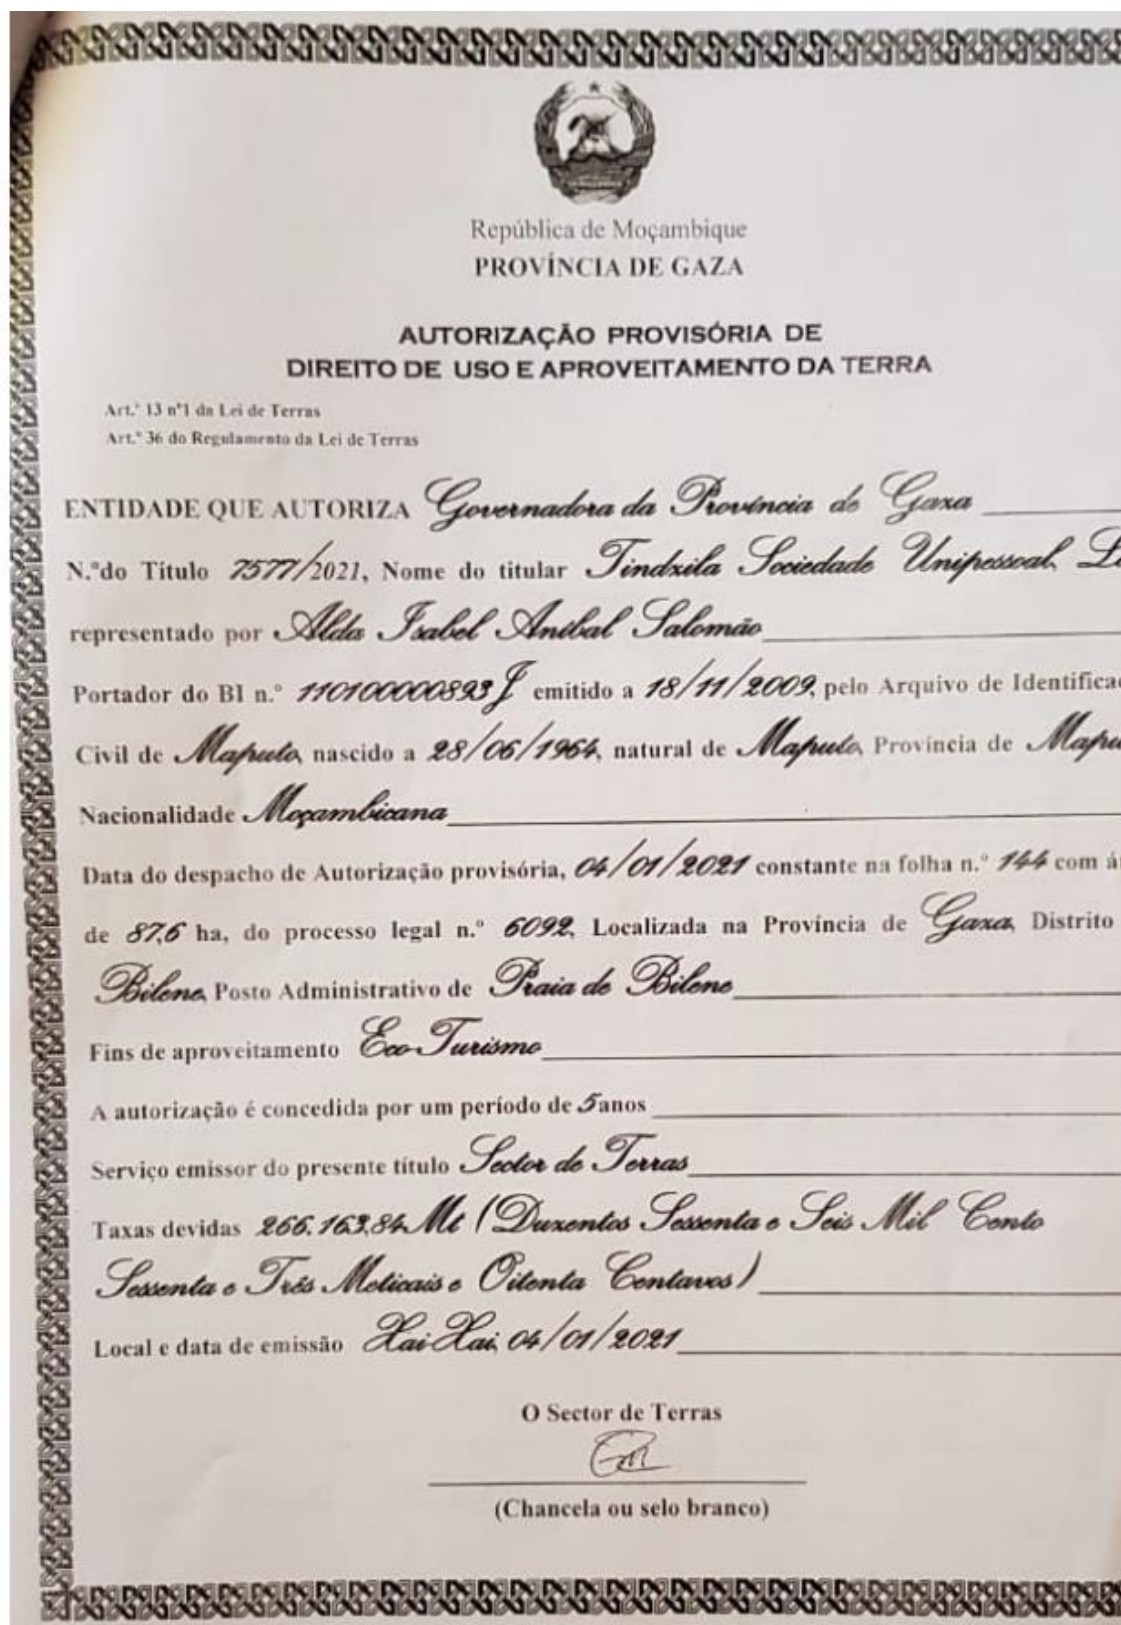 República de Moçambique
PROVÍNCIA DE GAZA
AUTORIZAÇÃO PROVISÓRIA DE
DIREITO DE USO E APROVEITAMENTO DA TERRA
Art.º 13 nº1 da Lei de Terras
Art.º 36 do Regulamento da Lei de Terras
ENTIDADE QUE AUTORIZA Governadora da Província de Gaza
N.ºdo Título 7577/2021, Nome do titular Tindzila Sociedade Unipessoal, L
representado por Alda Isabel Aníbal Salomão
Portador do BI n.º 110100000893J emitido a 18/11/2009, pelo Arquivo de Identifica
Civil de Maputo, nascido a 28/06/1964, natural de Maputo, Província de Mapu
Nacionalidade Moçambicana
Data do despacho de Autorização provisória, 04/01/2021 constante na folha n.º 144 com á
de 87,6 ha, do processo legal n.º 6092, Localizada na Província de Gaza, Distrito
Bilene, Posto Administrativo de Praia de Bilene
Fins de aproveitamento Eco-Turismo
A autorização é concedida por um período de 5 anos
Serviço emissor do presente título Sector de Terras
Taxas devidas 266.163,84 Mt (Duzentos Sessenta e Seis Mil Cento
Sessenta e Três Meticais e Oitenta Centavos)
Local e data de emissão Xai-Xai, 04/01/2021
O Sector de Terras
(Chancela ou selo branco)